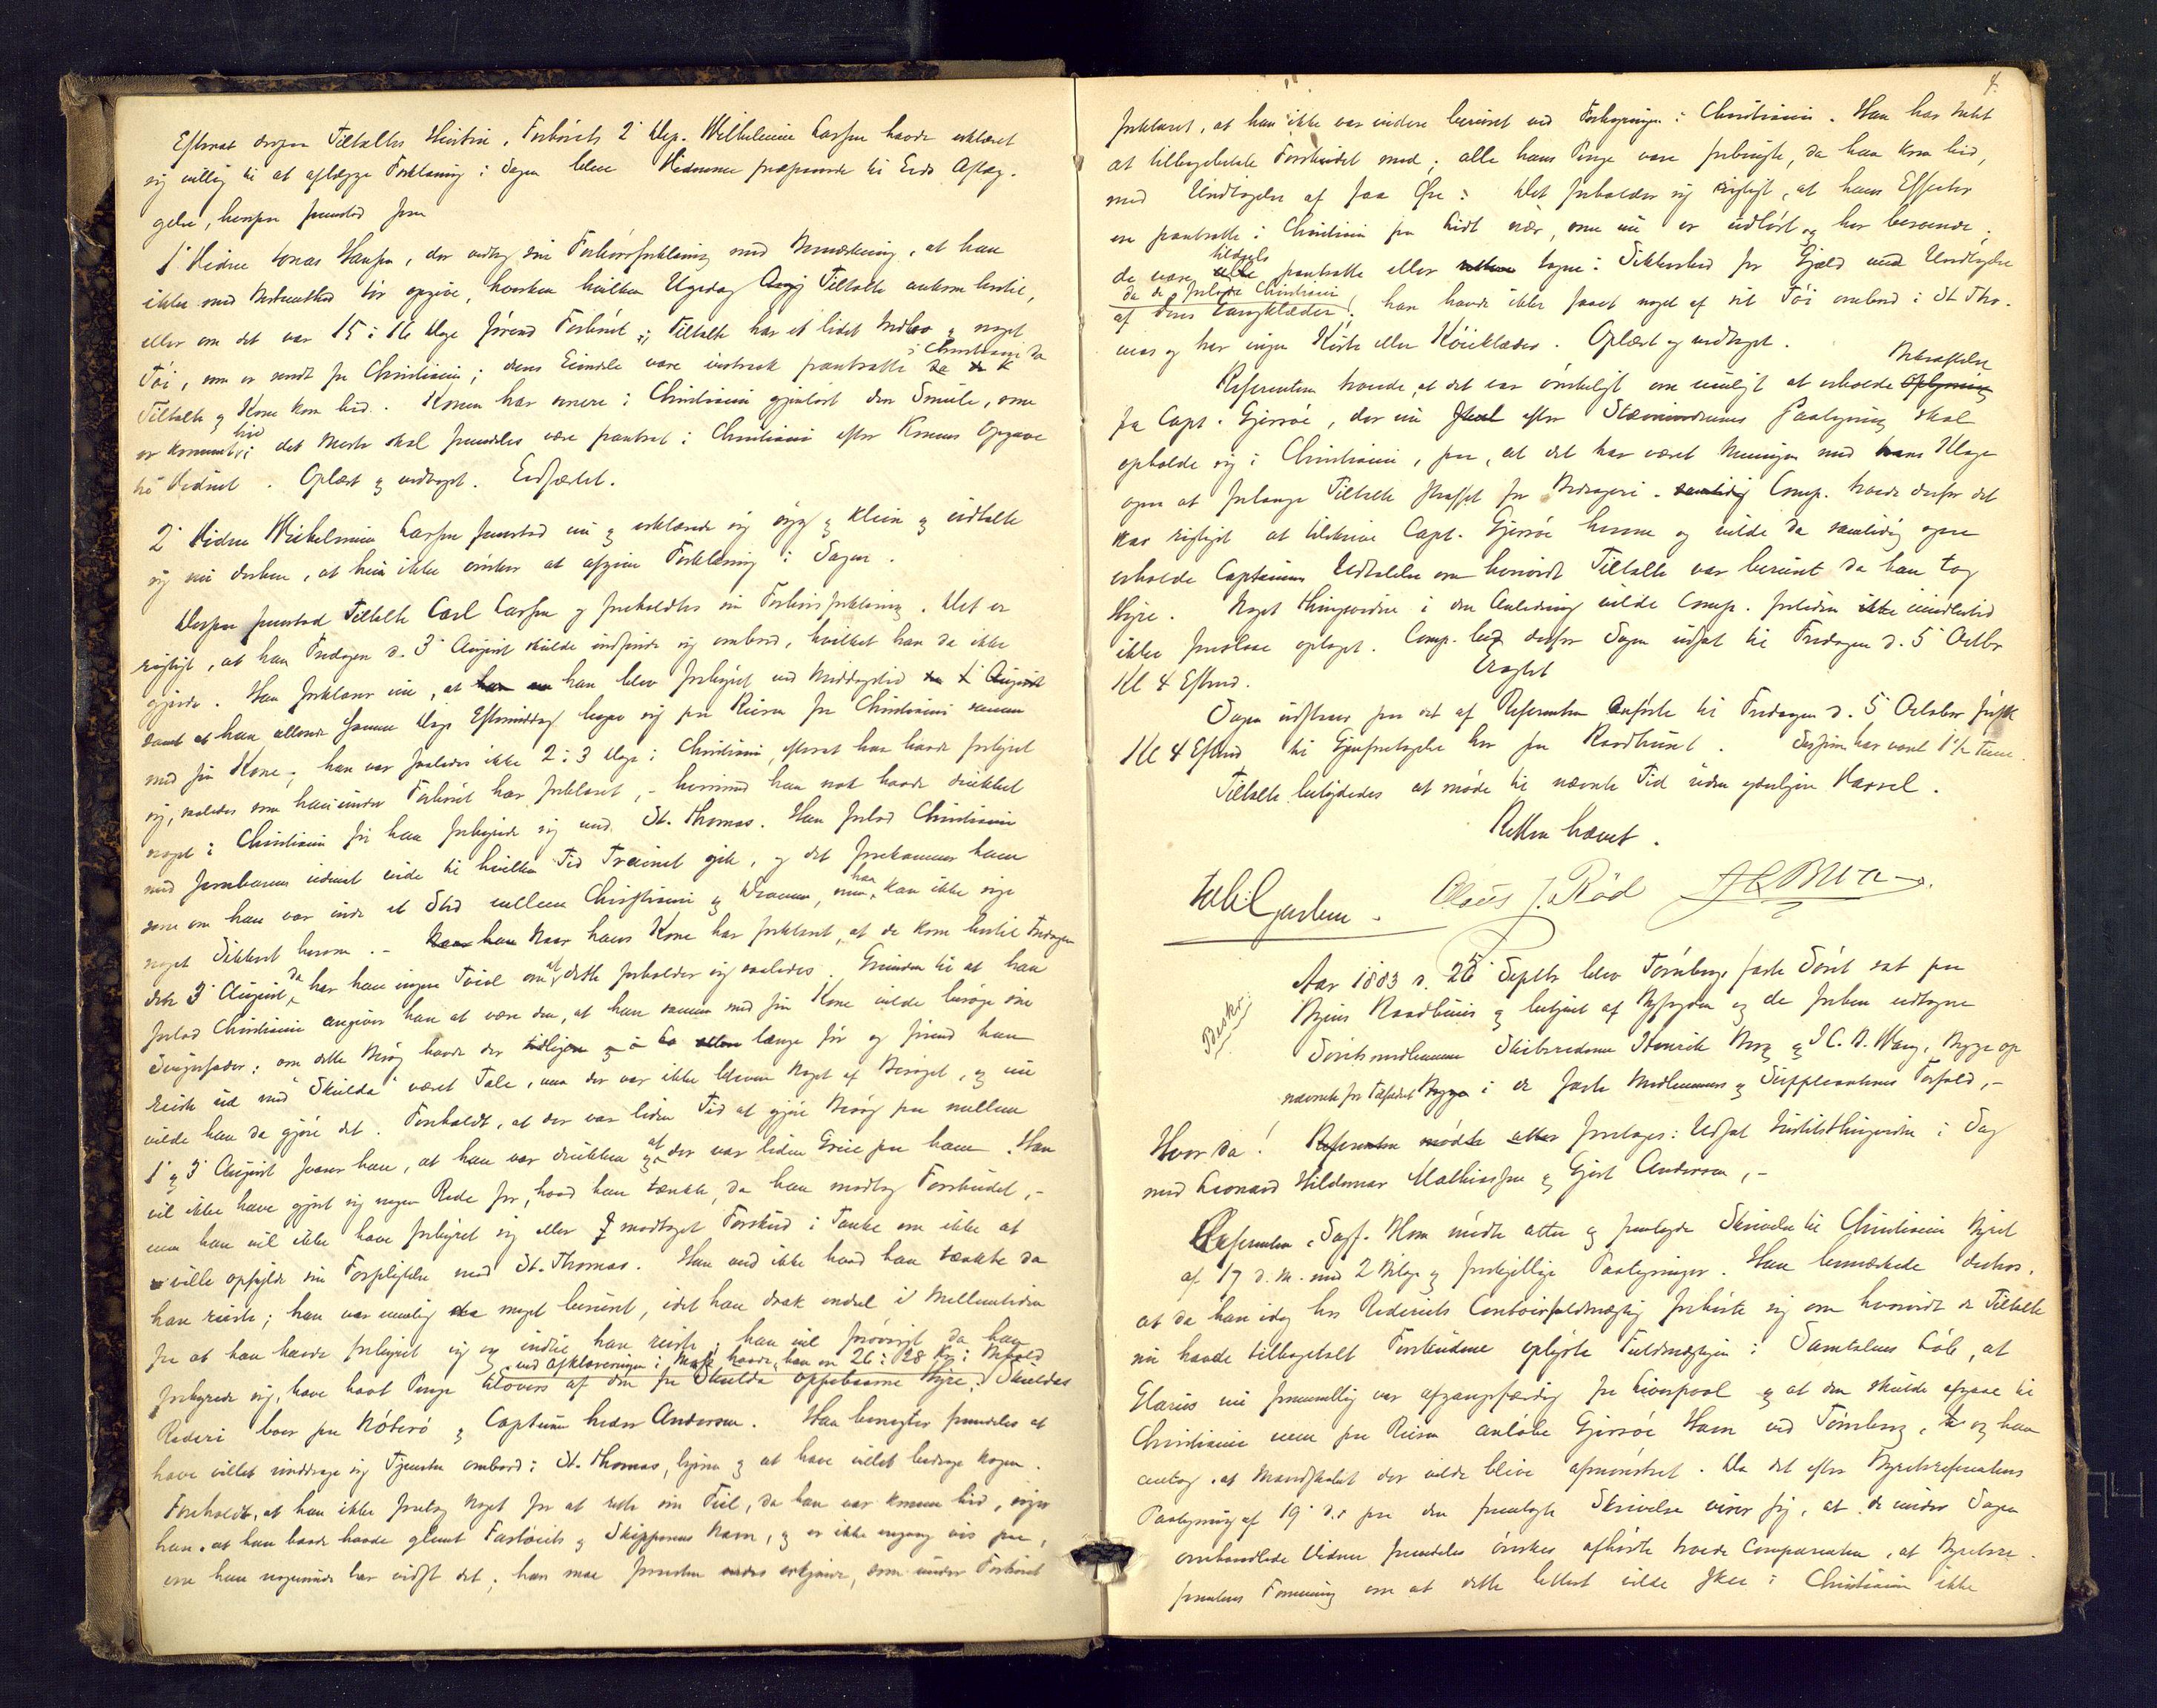 Efterat derpaa Tiltaltes Hustru, Forhörets 2' Dep. Wilhelmine Larsen havde erklæret
sig villig til at aflægge Forklaring i Sagen bleve Vidnerne præparerede til Eeds Aflæg-
gelse, hvorpaa fremstod som
1' Vidne Jonas Hansen, der vedtog sin Forhörsforklaring med Bemærkning, at han
ikke med Bestemthed tör opgive, hverken hvilken Ugedag Tiltalte ankom hertil,
eller om det var 15 à 16 Dage förend Forhöret; Tiltalte har et lidet Indbo og noget
Töi, som er sendt fra Christiania; deres Eiendele vare instræk pantsatte i Christiania da
Tiltalte og Kone kom hid. Konen har senere i Christiania gjenlöst den Smule, som
er kommet hid; det Meste skal fremdeles være pantsat i Christiania efter Konens Opgave
til Vidnet. Oplæst og vedtaget. Eedfæstet.
2' Vidne Wilhelmine Larsen fremstod nu og erklærede sig syg og klein og udtalte
sig nu derhen, at hun ikke önsker at afgive Forklaring i Sagen.
Derpaa fremstod Tiltalte Carl Larsen og foreholdtes sin Forhörsforklaring. Det er
rigtigt, at han Fredagen d. 3' August skulde indfinde sig ombord, hvilket han da ikke
gjorde. Han forklarer nu, at han blev forhyret ved Middagstid den 1' August
samt at han allerede samme Dags Eftermiddag begav sig paa Reisen fra Christiania sammen
med sin Kone; han var saaledes ikke 2 à 3 Dage i Christiania, efterat han havde forhyret
sig, saaledes som han under Forhöret har forklaret, - hvorimod han nok havde drukket
noget i Christiania för han forhyrede sig med St. Thomas. Han forlod Christiania
med Jernbanen uden at vide til hvilken Tid Trainet gik, og det forekommer ham
som om han var inde et Sted mellem Christiania og Drammen, men han kan ikke sige
noget Sikkert herom. - Naar hans Kone har forklaret, at de kom hertil Fredagen
den 3' August, da har han ingen Tvivl om at dette forholder sig saaledes. Grunden til at han
forlod Christiania angiver han at være den, at han sammen med sin Kone vilde besöge sin
Svigerfader; om dette Besög havde der længe för og förend han
reiste ud med "Skulda" været Tale, men der var ikke bleven Noget af Besöget, og nu
vilde han da gjöre det. Foreholdt, at der var liden Tid at gjöre Besög paa mellem
1' og 3' August svarer han, at han var drukken og at der var liden Greie paa ham. Han
vil ikke have gjort sig nogen Rede for, hvad han tænkte, da han modtog Forskudet, -
men han vil ikke have forhyret sig eller modtaget Forskud i Tanke om ikke at
ville opfylde sin Forpligtelse med St. Thomas. Han ved ikke hvad han tænkte da
han reiste; han var nemlig meget beruset, idet han drak endel i Mellemtiden
fra at han havde forhyret sig og indtil han reiste; han vil forövrigt, da han
ved Afklareringen i Mass havde han en 26 à 28 Kr. i Behold
forhyrede sig, have havt Penge tilovers af den fra Skulda oppebaarne Hyre. Skuldas
Rederi boer paa Nöterö og Captainen heder Andersen. Han benegter fremdeles at
have villet unddrage sig Tjenesten ombord i St. Thomas, ligesom og at have villet bedrage Nogen.
Foreholdt, at han ikke foretog Noget for at rette sin Feil, da han var kommen hid, siger
han, at han baade havde glemt Fartöiets og Skipperens Navn, og er ikke engang vis paa,
om han nogensinde har vidst det; han maa forresten erkjende, som under Forhöret
4.
forklaret, at han ikke var videre beruset ved Forhyringen i Christiania. Han har Intet
at tilbagebetale Forskudet med; alle hans Penge vare forbrugte, da han kom hid,
med Undtagelse af faa Öre. Det forholder sig rigtigt, at hans Effecter
ere pantsatte i Christiania fra Tidt nær, som nu er udlöst og her beroende;
de vare tildels pantsatte eller tagne i Sikkerhed for Gjæld med Undtagelse
da de forlode Christiania
af deres Gangklæder; han havde ikke faaet noget af sit Töi ombord i St. Tho-
mas og har ingen Kiste eller Köieklæder. Oplæst og vedtaget.
Bekræftelse
Referenten troede, at det var önskeligt om muligt at erholde
fra Capt. Gjersöe, der nu efter Stævningens Paategning skal
opholde sig i Christiania, paa, at det har været Meningen med hans Klage
ogsaa at forlange Tiltalte straffet for Bedrageri. Comp. troede derfor det
var rigtigst at tilskrive Capt. Gjersöe herom og vilde da samtidig ogsaa
erholde Captainens Udtalelse om hvorvidt Tiltalte var beruset da han tog
Hyre. Noget Thingsvidne i den Anledning vilde Comp. foröden imidlertid
ikke foreslaae optaget. Comp. bad derfor Sagen udsat til Fredagen d. 5' Octbr
Kl 4 Eftmd.
Eragtet
Sagen udstaaer paa det af Referenten Anförte til Fredagen d. 5' October förstk
Kl 4 Eftmd til Gjenforetagelse her paa Raadhuset. Sessionen har varet 1 1/2 Time.
Tiltalte betydedes at möde til nævnte Tid uden yderligere Varsel.
Retten hævet.
Claus J. Röd
Beskr.
Aar 1883 d. 26' Septbr blev Tönsbergs faste Sörét sat paa
Byens Raadhuus og betjent af Byfogden og de forhen udtagne
Söretsmedlemmer Skibsrederne Henrik Berg og J C. D. Wang, Begge op-
nævnte for Tilfældet i de faste Medlemmers og Suppleanternes Forfald, -
Hvor da! foretages: Udsat Justitsthingsvidne i Sag
mod Leonard Hildemar Mathiassen og Gjert Andersen, -
Referenten, Sagf. Blom mödte atter og fremlagde Skrivelse til Christiania Byret
af 17 d. M. med 2 Bilage og forskjellige Paategninger. Han bemærkede derhos,
at da han idag hos Rederiets Contoirfuldmægtig forhörte sig om hvorvidt de Tiltalte
nu havde tilbagebetalt Forskudene oplyste Fuldmægtigen i Samtalens Löb, at
Glarus nu formentlig var afgangsfærdig fra Liverpool og at den skulde afgaae til
Christiania men paa Reisen anlöbe Gjersöe Havn ved Tönsberg, og han
antog at Mandskabet der vilde blive afmönstret. Da det efter Byretsreferentens
Paategning af 19' d.s paa den fremlagte Skrivelse viser sig, at de under Sagen
omhandlede Vidner fremdeles önskes afhörte troede Comparenten, at Byretsre-
ferentens Formening om at dette lettest vilde skee i Christiania ikke